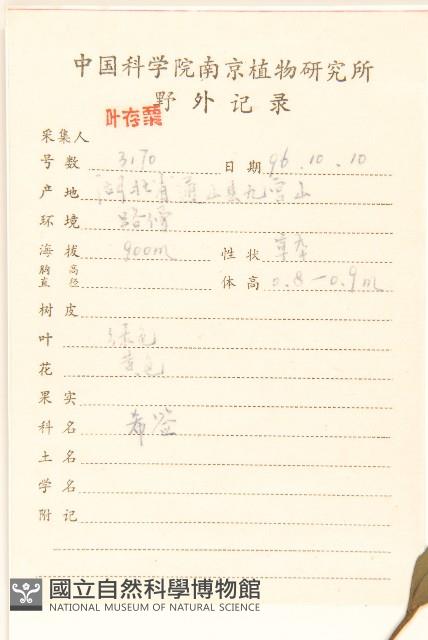 中国科学院南京植物研究所
野外记录
叶存粟
采集人
号数 3170 日期 96.10.10
产地 湖北省通山县九宫山
环境 路旁
海拔 900m 性状 草本
胸高直径 体高 0.8—0.9m
树皮
叶 绿色
花 黄色
果实
科名
土名
学名
附记
國立自然科學博物館
NATIONAL MUSEUM OF NATURAL SCIENCE